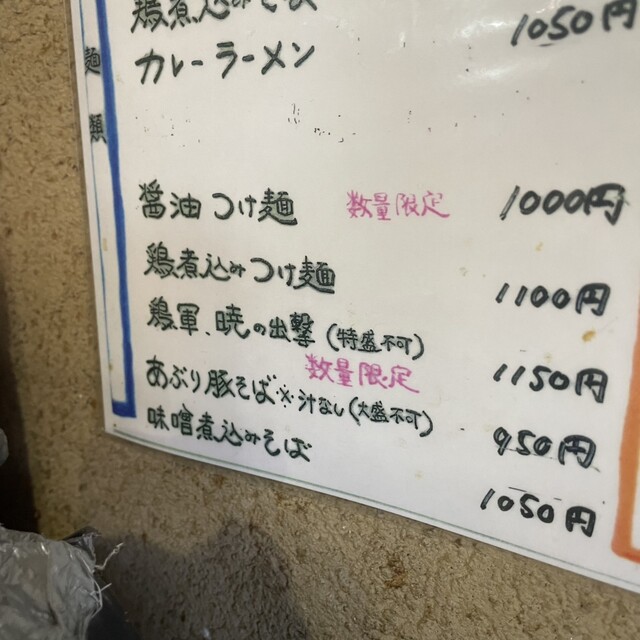 麺類
鶏煮込みそば
カレーラーメン 1050円
醤油つけ麺 数量限定 1000円
鶏煮込みつけ麺 1100円
鶏軍、暁の出撃(特盛不可) 1150円
数量限定
あぶり豚そば※汁なし(大盛不可) 950円
味噌煮込みそば 1050円